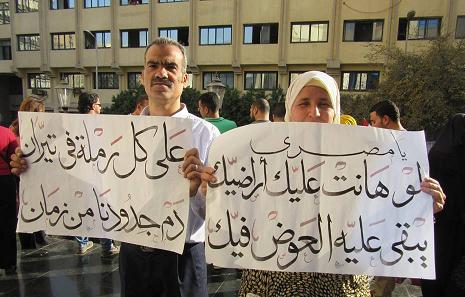 على كل رملة في تيران
دم جدودنا من زمان
يا مصري
لو هانت عليك أراضيك
يبقى عليه العوض فيك